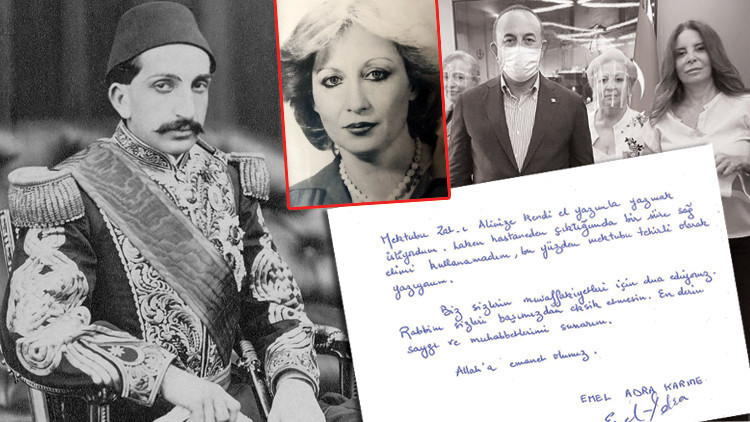 Mektubu Zat-ı Alinize kendi el yazımla yazmak
istiyordum. Lakin hastaneden çıktığımda bir süre sağ
elimi kullanamadım, bu yüzden mektubu tehirli olarak
yazıyorum.
Biz sizlerin muvaffakiyetleri için dua ediyoruz.
Rabbim sizleri başımızdan eksik etmesin. En derin
saygı ve muhabbetlerimi sunarım.
Allah'a emanet olunuz.
EMEL ADRA KARIME